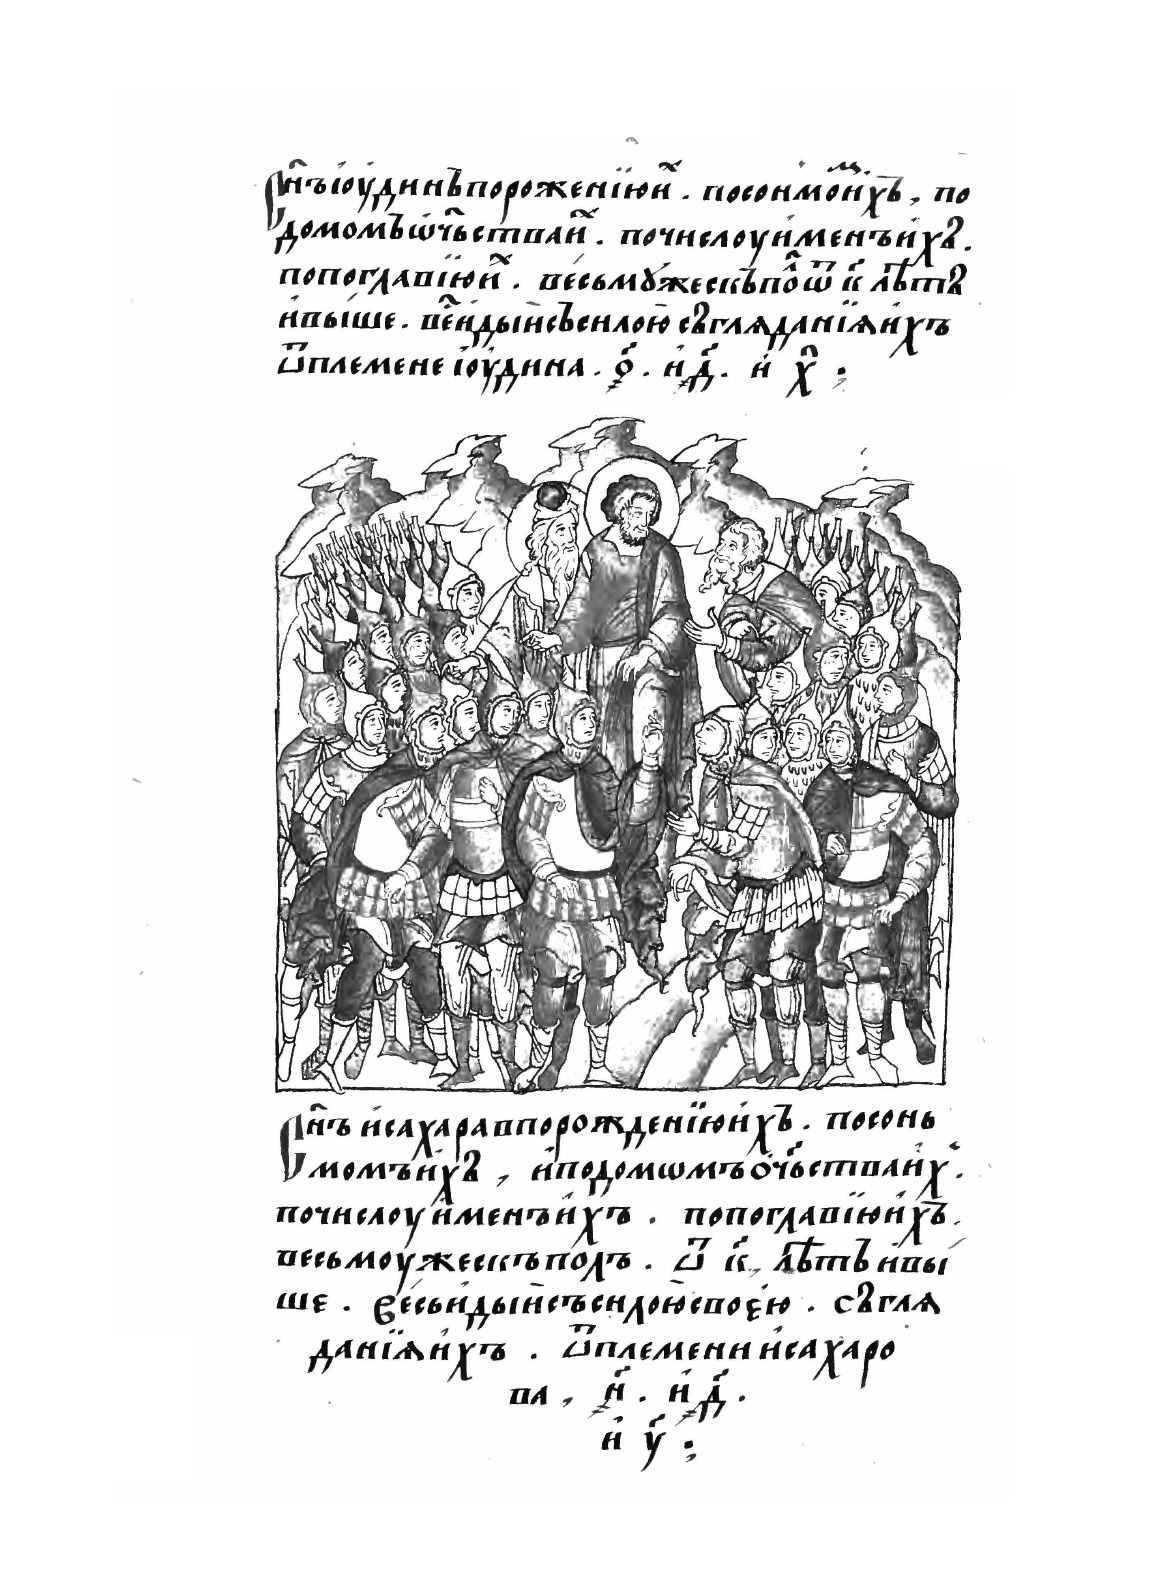 Сн҃ъ і҆ѹдинъ в порожении҆ их . по сонмом их , по
домомъ ѡч҃ьства их . по числѹ имен их .
по поглавїю их . весь мꙋжескъ пол ѿ к҃ лѣтъ
и҆ выше . весь иды҆и съ силою съглѧданїѧ и҆хъ
ѿ племене і҆ѹдина . о҃ . и҆ д҃ . и҆ х҃ :
Сн҃ъ и҆сахара в порождении҆ и҆хъ . по сонь
момъ и҆хъ , и҆ по домѡмъ о҆ч҃ьства их .
по числѹ и҆менъ и҆хъ . по поглавїю и҆хъ .
весь мѹжескъ полъ . ѿ к҃ , лѣтъ и҆ вы
ше . весь иды҆и съ силою своею . съглѧ
данїѧ и҆хъ . ѿ племени и҆сахаро
ва , н҃ . и҆ д҃ .
и҆ у҃ :